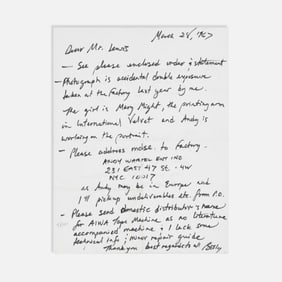 March 28, 1967
Dear Mr. Lewis
— See please enclosed order & statement
— Photograph is accidental double exposure
taken at the Factory last year by me.
The girl is Mary Might, the printing arm
in International Velvet and Andy is
working on the portrait.
— Please address mdse. to Factory.
ANDY WARHOL ENT IND
231 EAST 47 St. - 4W
NYC 10017
as Andy may be in Europe and
I'll pickup undeliverables etc. from P.O.
— Please send domestic distributor's name
for AIWA Tape Machine as no literature
accompanied machine & I lack some
technical info & minor repair guide
Thank you best regards to all Billy